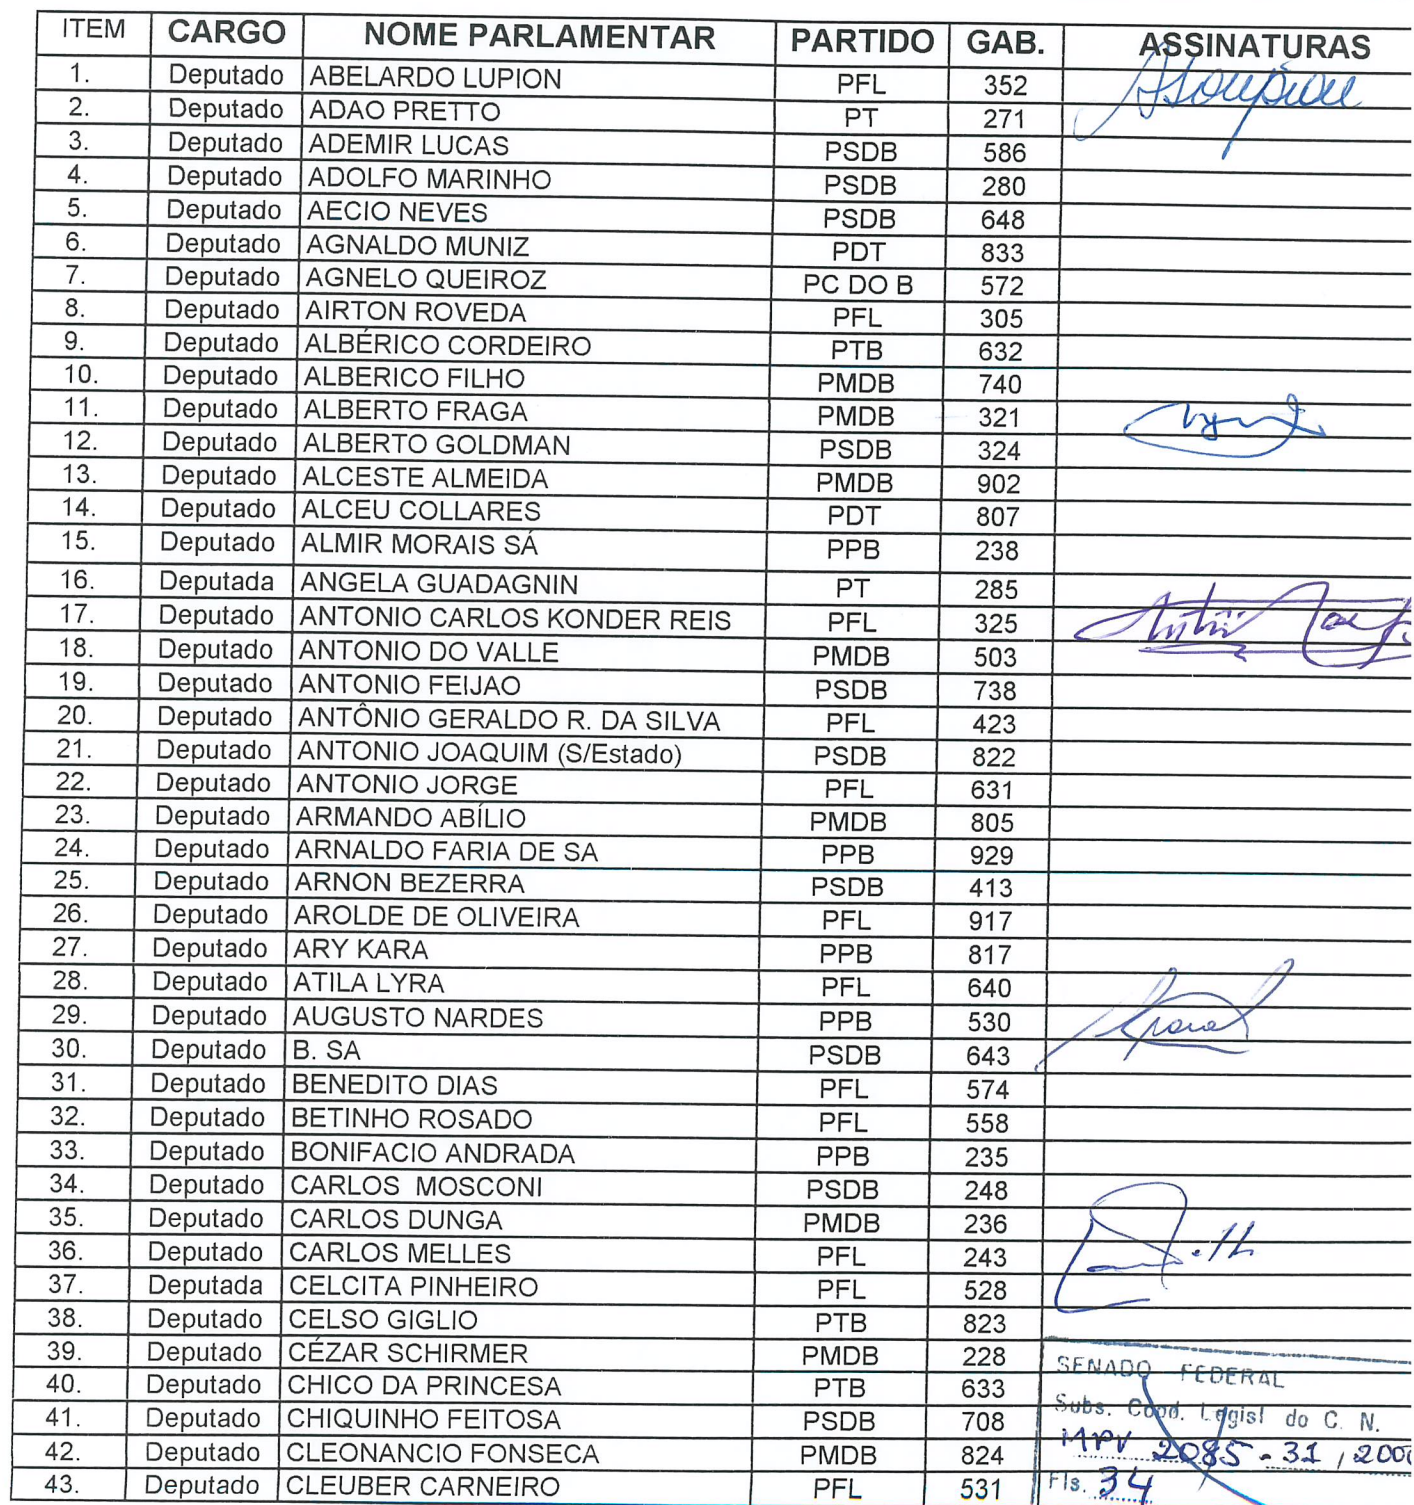 ITEM CARGO NOME PARLAMENTAR PARTIDO GAB. ASSINATURAS
1. Deputado ABELARDO LUPION PFL 352
2. Deputado ADAO PRETTO PT 271
3. Deputado ADEMIR LUCAS PSDB 586
4. Deputado ADOLFO MARINHO PSDB 280
5. Deputado AECIO NEVES PSDB 648
6. Deputado AGNALDO MUNIZ PDT 833
7. Deputado AGNELO QUEIROZ PC DO B 572
8. Deputado AIRTON ROVEDA PFL 305
9. Deputado ALBÉRICO CORDEIRO PTB 632
10. Deputado ALBERICO FILHO PMDB 740
11. Deputado ALBERTO FRAGA PMDB 321
12. Deputado ALBERTO GOLDMAN PSDB 324
13. Deputado ALCESTE ALMEIDA PMDB 902
14. Deputado ALCEU COLLARES PDT 807
15. Deputado ALMIR MORAIS SÁ PPB 238
16. Deputada ANGELA GUADAGNIN PT 285
17. Deputado ANTONIO CARLOS KONDER REIS PFL 325
18. Deputado ANTONIO DO VALLE PMDB 503
19. Deputado ANTONIO FEIJAO PSDB 738
20. Deputado ANTÔNIO GERALDO R. DA SILVA PFL 423
21. Deputado ANTONIO JOAQUIM (S/Estado) PSDB 822
22. Deputado ANTONIO JORGE PFL 631
23. Deputado ARMANDO ABÍLIO PMDB 805
24. Deputado ARNALDO FARIA DE SA PPB 929
25. Deputado ARNON BEZERRA PSDB 413
26. Deputado AROLDE DE OLIVEIRA PFL 917
27. Deputado ARY KARA PPB 817
28. Deputado ATILA LYRA PFL 640
29. Deputado AUGUSTO NARDES PPB 530
30. Deputado B. SA PSDB 643
31. Deputado BENEDITO DIAS PFL 574
32. Deputado BETINHO ROSADO PFL 558
33. Deputado BONIFACIO ANDRADA PPB 235
34. Deputado CARLOS MOSCONI PSDB 248
35. Deputado CARLOS DUNGA PMDB 236
36. Deputado CARLOS MELLES PFL 243
37. Deputada CELCITA PINHEIRO PFL 528
38. Deputado CELSO GIGLIO PTB 823
39. Deputado CÉZAR SCHIRMER PMDB 228
40. Deputado CHICO DA PRINCESA PTB 633
41. Deputado CHIQUINHO FEITOSA PSDB 708
42. Deputado CLEONANCIO FONSECA PMDB 824
43. Deputado CLEUBER CARNEIRO PFL 531
SENADO FEDERAL
Subs. Coord. Legisl do C. N.
MPV 2085-31, 200
Fls. 34